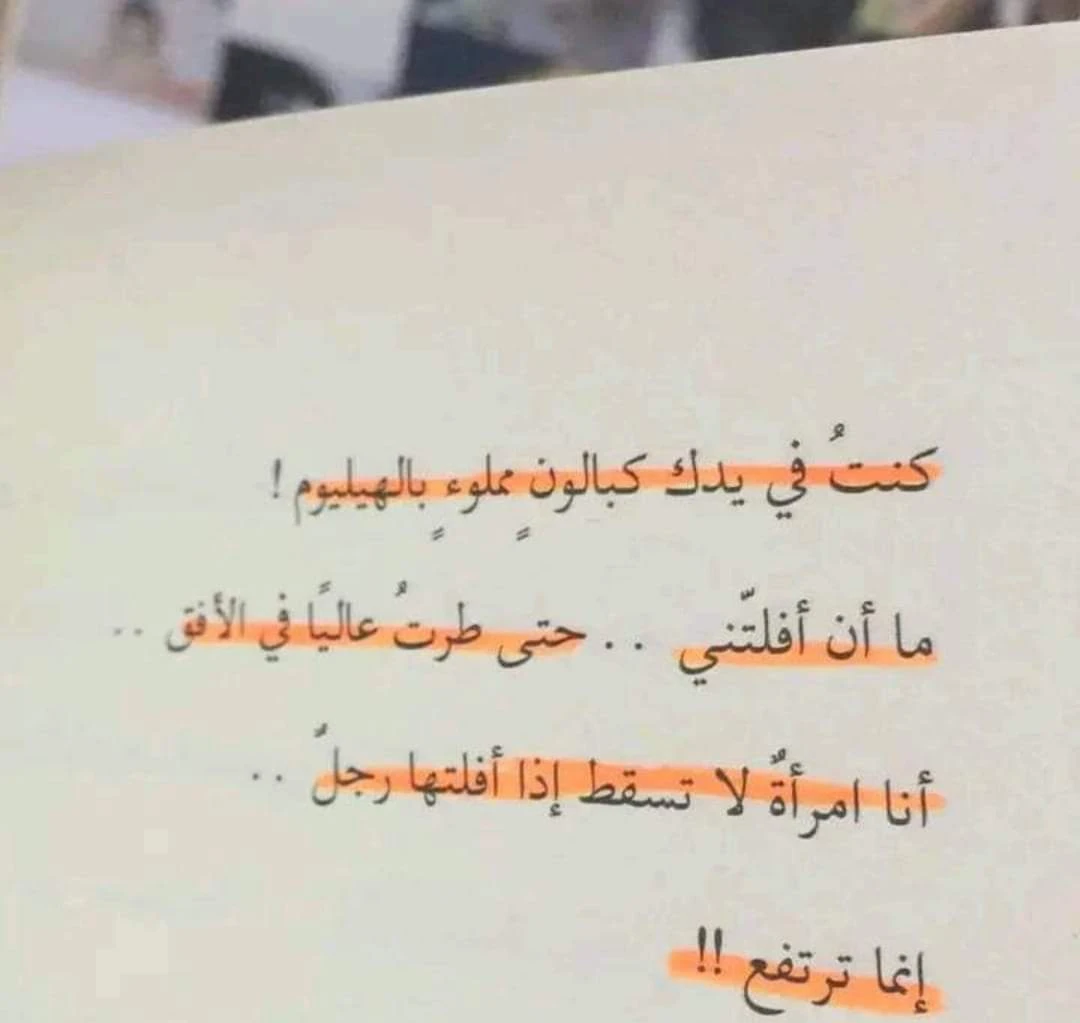 كنتُ في يدك كبالونٍ مملوءٍ بالهيليوم !
ما أن أفلتّني .. حتى طرتُ عاليًا في الأفق ..
أنا امرأةٌ لا تسقط إذا أفلتها رجلٌ ..
إنما ترتفع !!